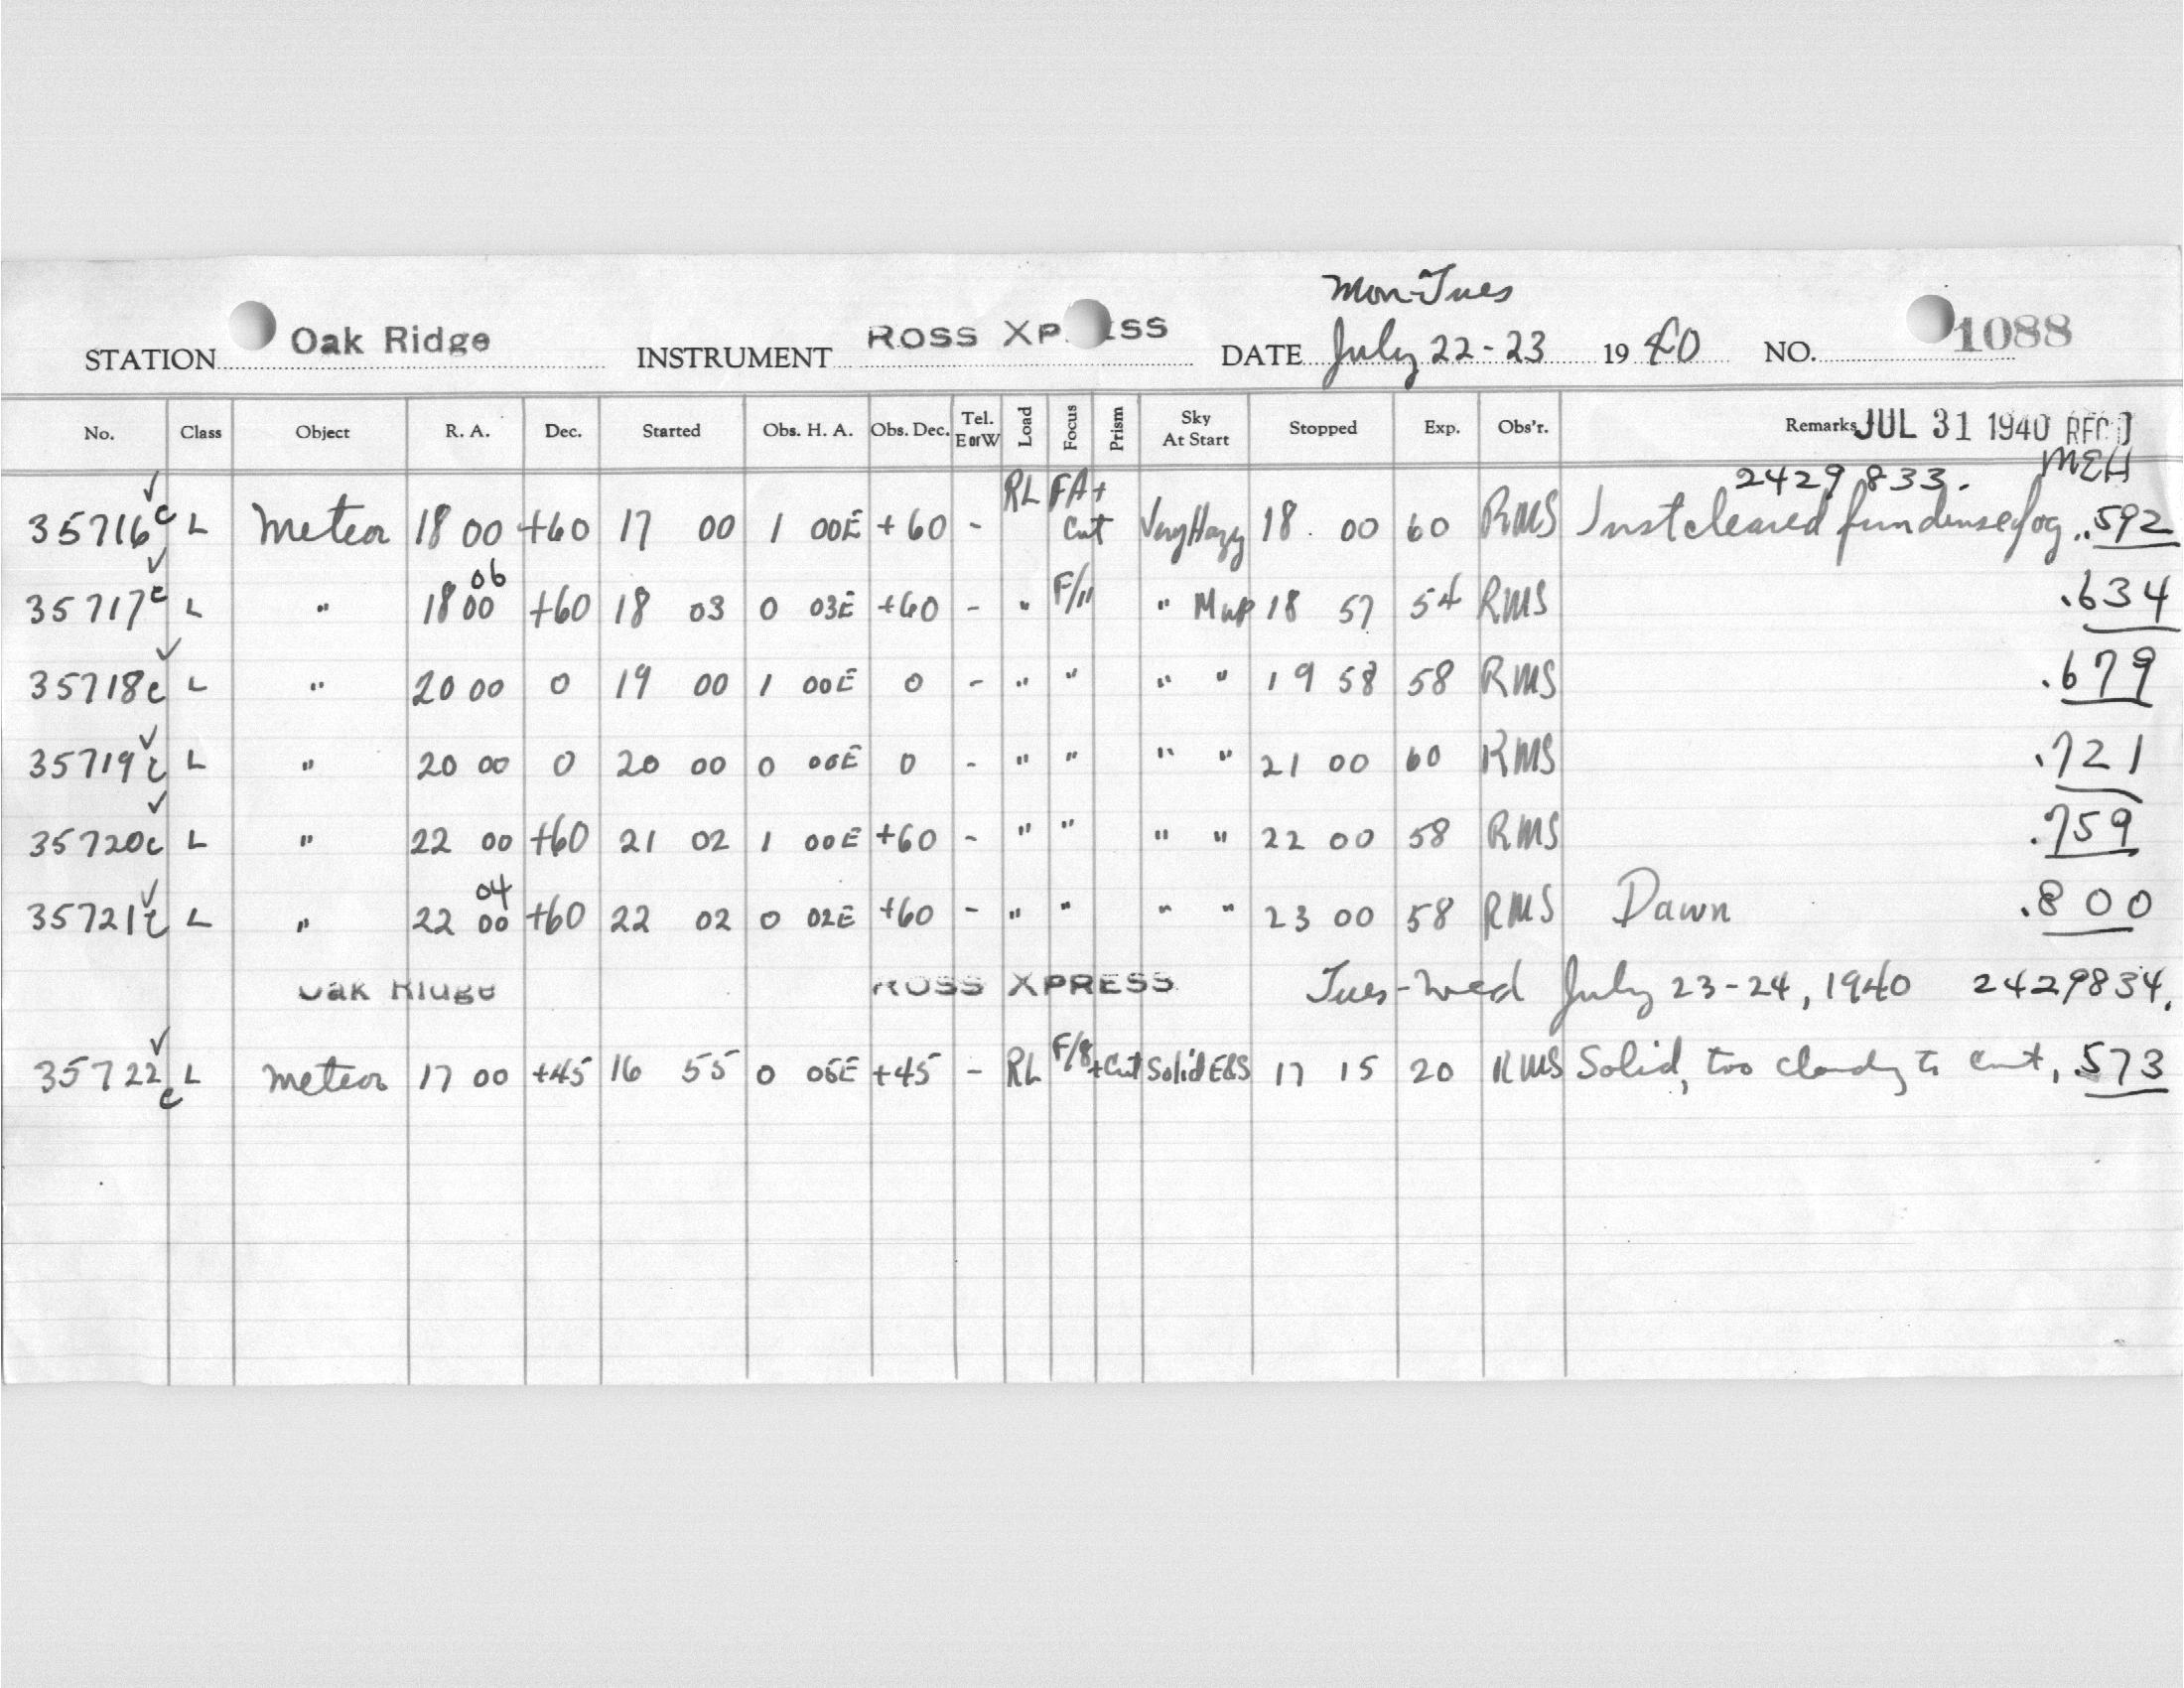 Mon-Tues
STATION Oak Ridge INSTRUMENT ROSS XPRESS DATE July 22-23 1940 NO. 1088
No. Class Object R. A. Dec. Started Obs. H. A. Obs. Dec. Tel. E or W Load Focus Prism Sky At Start Stopped Exp. Obs'r. Remarks JUL 31 1940 REC'D
2429833. MEH
35716c L Meteor 18 00 +60 17 00 1 00E +60 - RL FA+ Cut Very Hazy 18 00 60 RMS Just cleared from dense fog .592
35717c L " 18 00 06 +60 18 03 0 03E +60 - " F/11 " 18 57 54 RMS .634
35718c L " 20 00 0 19 00 1 00E 0 - " " " " 19 58 58 RMS .679
35719c L " 20 00 0 20 00 0 00E 0 - " " " " 21 00 60 RMS .721
35720c L " 22 00 +60 21 02 1 00E +60 - " " " " 22 00 58 RMS .759
35721c L " 22 00 04 +60 22 02 0 02E +60 - " " " " 23 00 58 RMS Dawn .800
Oak Ridge ROSS XPRESS Tues-Wed July 23-24, 1940 2429834.
35722c L meteor 17 00 +45 16 55 0 05E +45 - RL F/8 +Cut Solid E&S 17 15 20 RMS Solid, too cloudy to cut, .573